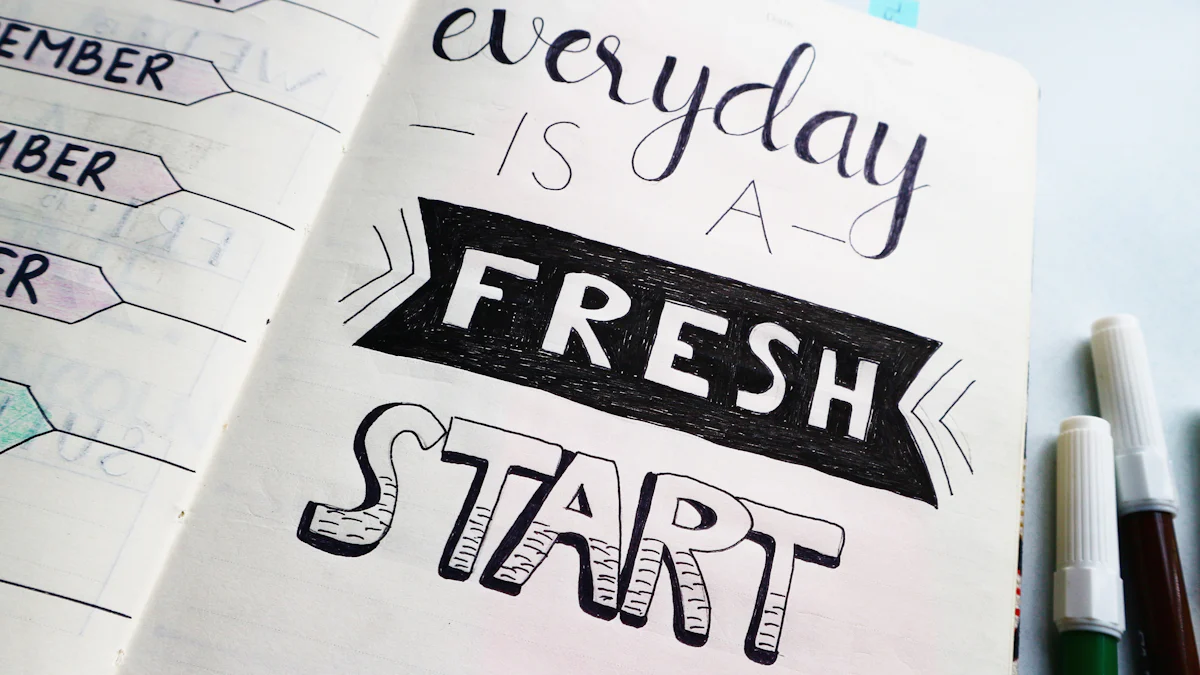 EMBER
MBER
ER
everyday
- IS A -
FRESH
START